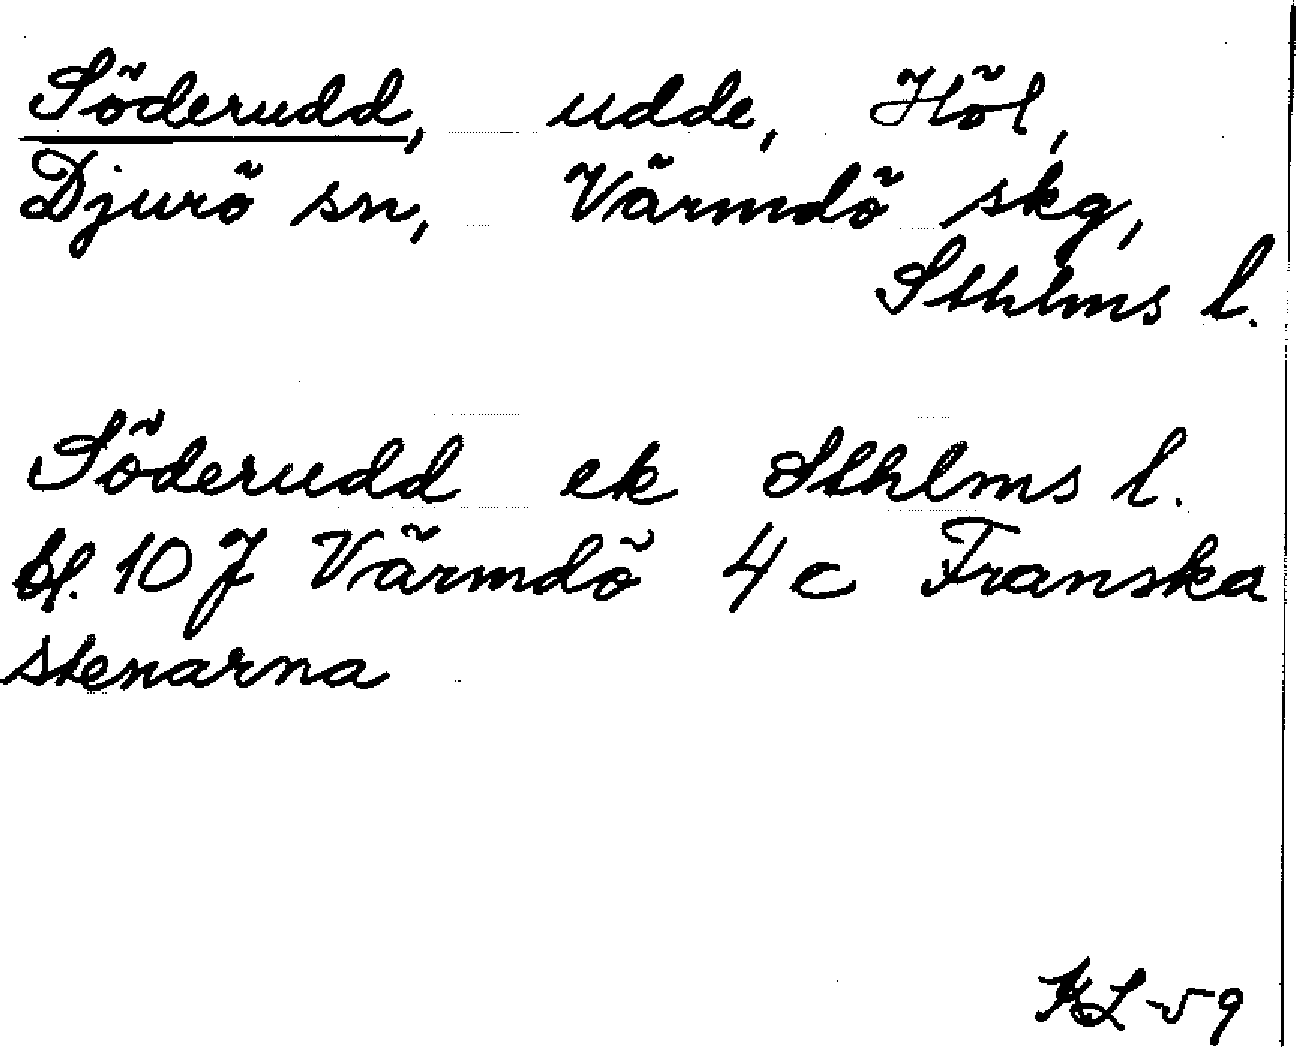 Söderudd, udde, Höl,
Djurö sn, Värmdö skg,
Sthlms l.
Söderudd ek Sthlms l.
bl. 10 J Värmdö 4 c Franska
stenarna
KL-59